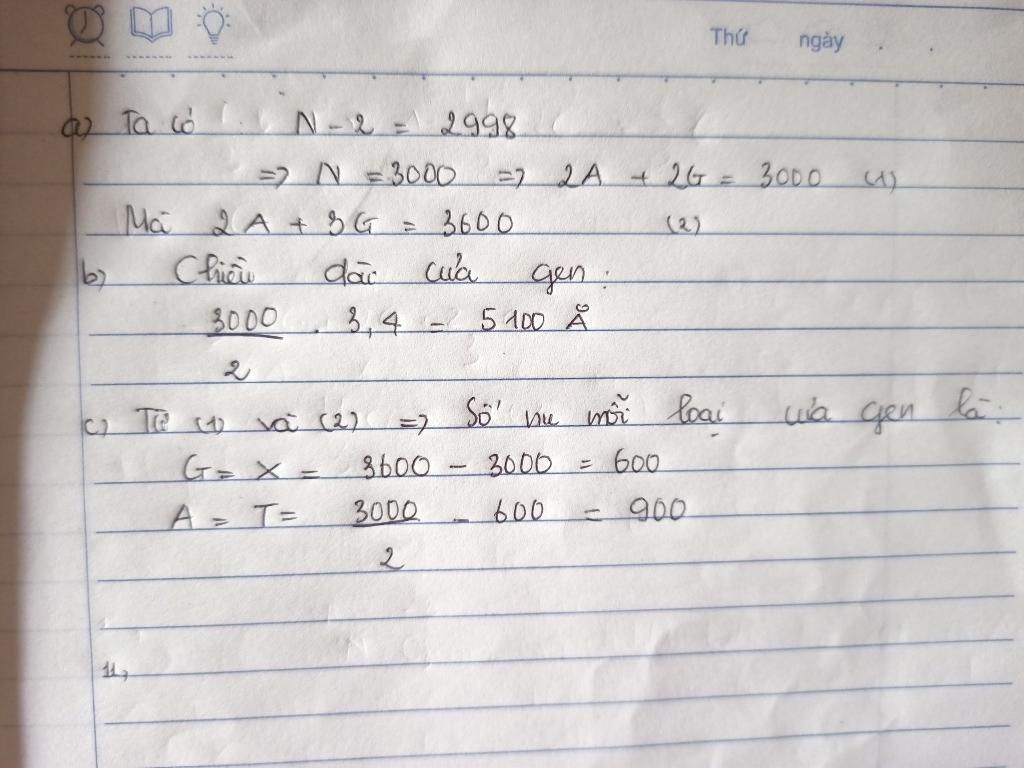 Thứ ngày . .
a) Ta có N - 2 = 2998
=> N = 3000 => 2A + 2G = 3000 (1)
Mà 2A + 3G = 3600 (2)
b) Chiều dài của gen:
3000/2 . 3,4 = 5100 Å
c) Từ (1) và (2) => Số nu mỗi loại của gen là:
G = X = 3600 - 3000 = 600
A = T = 3000/2 - 600 = 900
11,